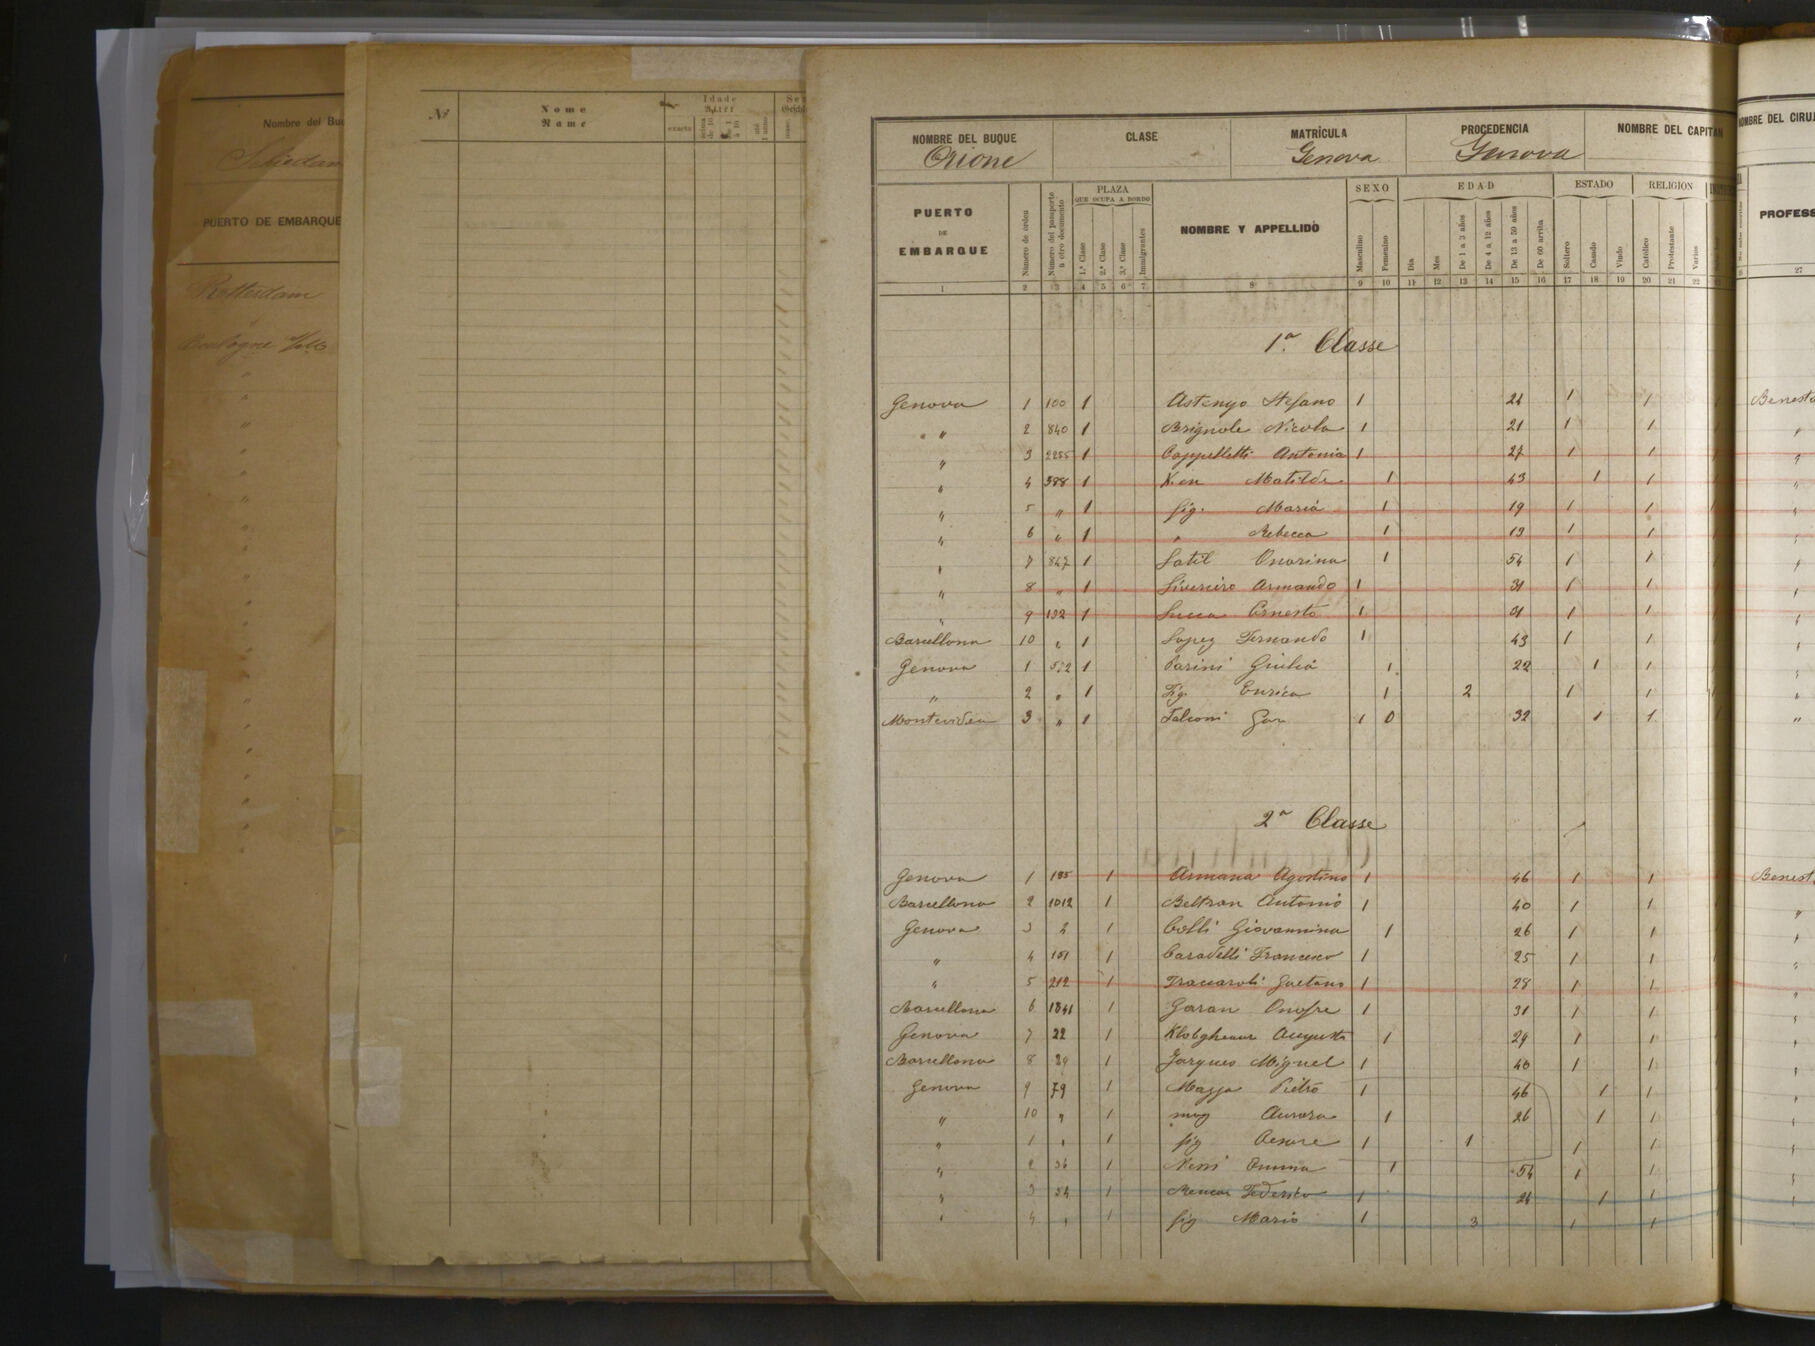 Nombre del Buq
Schiedam
PUERTO DE EMBARQUE
Rotterdam
Boulogne s/m
Nº
Nome
Name
Idade
Alter
exacta
NOMBRE DEL BUQUE
Orione
CLASE
MATRÍCULA
Genova
PROCEDENCIA
Genova
NOMBRE DEL CAPITAN
NOMBRE DEL CIRUJ
PUERTO
DE
EMBARQUE
Número de orden
Número del pasaporte
ú otro documento
PLAZA
QUE OCUPA A BORDO
1.ª Clase
2.ª Clase
3.ª Clase
Inmigrantes
NOMBRE Y APPELLIDO
SEXO
Masculino
Femenino
EDAD
Dia
Mes
De 1 a 3 años
De 4 a 12 años
De 13 a 59 años
De 60 arriba
ESTADO
Soltero
Casado
Viudo
RELIGION
Católico
Protestante
Varios
PROFES
1 2 3 4 5 6 7 8 9 10 11 12 13 14 15 16 17 18 19 20 21 22 27
1ª Classe
Genova 1 100 1 Astengo Stefano 1 24 1 1 Benest
" 2 840 1 Brignole Nicola 1 21 1 1 "
" 3 2255 1 Cappelletti Antonio 1 27 1 1 "
" 4 388 1 Ken Matilde 1 43 1 1 "
" 5 " 1 fig. Maria 1 19 1 1 "
" 6 " 1 " Rebecca 1 13 1 1 "
" 7 847 1 1 54 1 1 "
" 8 " 1 Armando 1 31 1 1 "
" 9 132 1 Ernesto 1 31 1 1 "
Barcellona 10 " 1 Lopez Fernando 1 43 1 1 "
Genova 1 1 Parini Giulia 1 22 1 1 "
" 2 " 1 Fig. Enrica 1 2 1 1 "
Montevideo 3 " 1 Falconi 1 0 32 1 1 "
2ª Classe
Genova 1 185 1 Armana Agostino 1 46 1 1 Benest
Barcellona 2 1012 1 Beltran Antonio 1 40 1 1 "
Genova 3 2 1 Colli Giovannina 1 26 1 1 "
" 4 151 1 Francesco 1 25 1 1 "
" 5 212 1 Gaetano 1 28 1 1 "
Barcellona 6 1841 1 Garan Onofre 1 31 1 1 "
Genova 7 22 1 Augusta 1 29 1 1 "
Barcellona 8 29 1 Jarques Miguel 1 40 1 1 "
Genova 9 79 1 Pietro 1 46 1 1 "
" 10 " 1 mog Aurora 1 26 1 1 "
" 1 " 1 fig Cesare 1 1 1 1 "
" 2 36 1 1 54 1 1 "
" 3 34 1 Federico 1 24 1 1 "
" 4 " 1 fig Mario 1 3 1 1